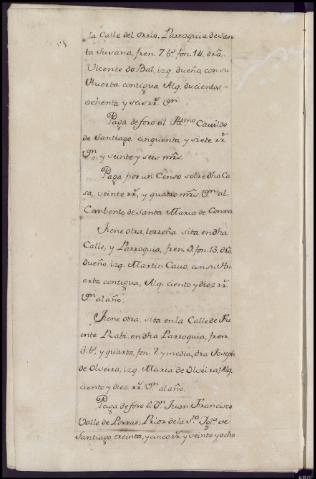 la Calle del orrio, Parroquia de San
ta Susana, fren. 7 bs. fon. 14. dra.
Vicente do Bal, izq. dueña con su
Huerta contigua Alq. ducientos
ochenta y seis rr. Vn.
Paga de foro al Illmo Cavildo
de Santiago cinquenta y siete rr.
Vn. y veinte y seis mrs.
Paga por un Censo sobre dha Ca
sa, veinte rr. y quatro mrs. Vn. al
Combento de Santa Maria de Conxo
Tiene otra, terreña sita en dha
Calle, y Parroquia, fren. 3. fon. 13. dra.
dueño, izq. Martin Cavo, con su Hu
erta contigua, Alq. ciento y diez rr.
Vn. al año.
Tiene otra, sita en la Calle de Fu
ente Rabi. en dha Parroquia, fren.
3. bs. y quarta, fon. 7. y media, dra. Joseph
de Olveira, izq. Maria de Olveira, Alq.
ciento y diez rr. Vn. al año.
Paga de foro à Dn. Juan Francisco
Valle de Porras, Prior de la Sta. Igla. de
Santiago treinta, y cinco rr. y veinte y ocho